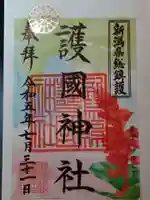 新潟県総鎮護
護國神社
奉拝
令和五年七月三十一日